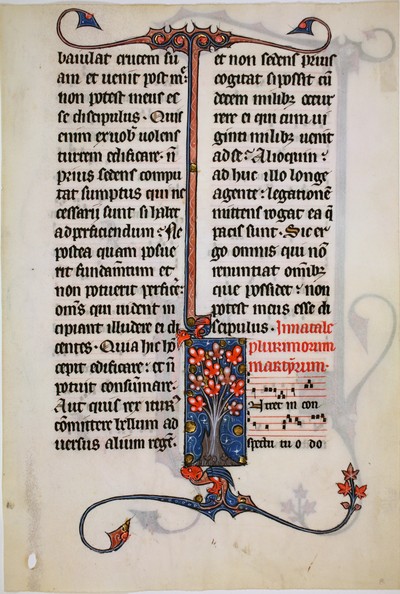 baiulat crucem su
am et uenit post me:
non potest meus es
se discipulus. Quis
enim ex uob uolens
turrem edificare. n̄
prius sedens compu
tat sumptus qui ne
cessarij sunt si habet
ad perficiendum: Ne
postea quam posue
rit fundam̄tum et
non potuerit perfic̄e:
om̄s qui uident in
cipiant illudere ei di
centes. Quia hic hō
cepit edificare: et n̄
potuit consūmare.
Aut quis rex iturꝰ
cōmittere bellum ad
uersus alium regē.
et non sedens prius
cogitat si possit cū
decem milibꝫ occur
rere ei qui cum ui
ginti milibꝫ uenit
ad se: Alioquin:
ad huc illo longe
agente: legationē
mittens rogat ea q̄
pacis sunt. Sic er
go omnis qui nō
renuntiat om̄ibꝫ
que possidet: non
potest meus esse di
scipulus. In natale
plurimorum
martyrum.
Intret in con
spectu tu o do